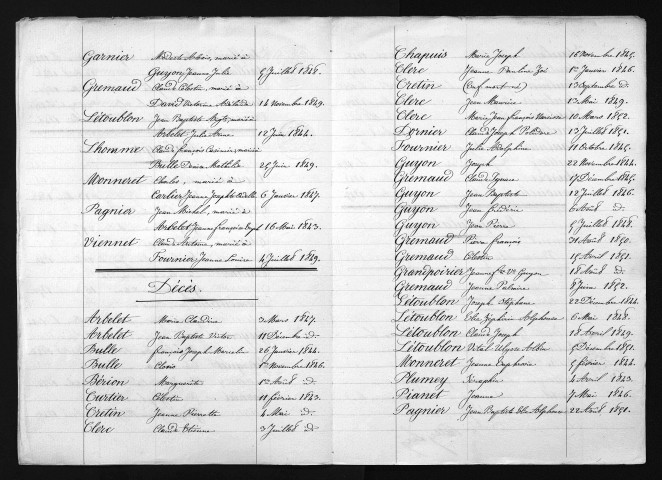 Garnier Modeste Arbois, marié à
Guyon Jeanne Julie 9 Juillet 1848.
Gremaud Claude Célestin, marié à
David Victorine Adélaïde 14 Novembre 1849.
Létoublon Jean Baptiste, marié à
Arbelet Julie Anne 12 Juin 1844.
Lhomme Claude François Casimir, marié à
Bulle Denise Mathilde 25 Juin 1849.
Monneret Charles, marié à
Cartier Jeanne Josephte 6 Janvier 1847.
Pagnier Jean Michel, marié à
Arbelet Jeanne Françoise 16 Mai 1843.
Viennet Claude Antoine, marié à
Fournier Jeanne Louise 4 Juillet 1849.
Décès.
Arbelet Marie Claudine 3 Mars 1847.
Arbelet Jean Baptiste Victor 11 Décembre d°
Bulle François Joseph Marcelin 26 Janvier 1844.
Bulle Clovis 1er Novembre 1846.
Bérion Marguerite 1er Août d°
Curtier Célestin 11 février 1843.
Cretin Jeanne Pierrette 4 Mai d°
Clerc Claude Etienne 3 Juillet d°
Chapuis Marie Joseph 16 Novembre 1845.
Clerc Jeanne Pauline Zoé 1er Janvier 1846.
Cretin (Enf. mort-né) 13 Septembre d°
Clerc Jean Maurice 13 Mai 1849.
Clerc Marie Jean François 10 Mars 1852.
Dornier Claude Joseph 13 Juillet 1851.
Fournier Julie Adelphine 11 Octobre 1845.
Guyon Joseph 22 Novembre 1844.
Gremaud Claude Ignace 17 Décembre 1845.
Guyon Jean Baptiste 12 Juillet 1846.
Guyon Jean Frédéric 6 Août d°
Guyon Jean Pierre 5 Juillet 1848.
Gremaud Pierre François 31 Août 1850.
Gremaud Célestin 15 Avril 1851.
Grandpoirier Jeanne Fse Ve Guyon 18 Août d°
Gremaud Jeanne Palmire 8 Juin 1852.
Létoublon Joseph Stéphane 22 Décembre 1844.
Létoublon Elie Zéphirin Alphonse 6 Mai 1848.
Létoublon Claude Joseph 18 Avril 1849.
Létoublon Vital Ulysse Albin 9 Décembre 1851.
Monneret Jeanne Euphrosie 9 février 1844.
Plumey Séraphin 4 Avril 1843.
Pianet Jeanne 7 Mai 1846.
Pagnier Jean Baptiste Elie Alphonse 22 Avril 1850.